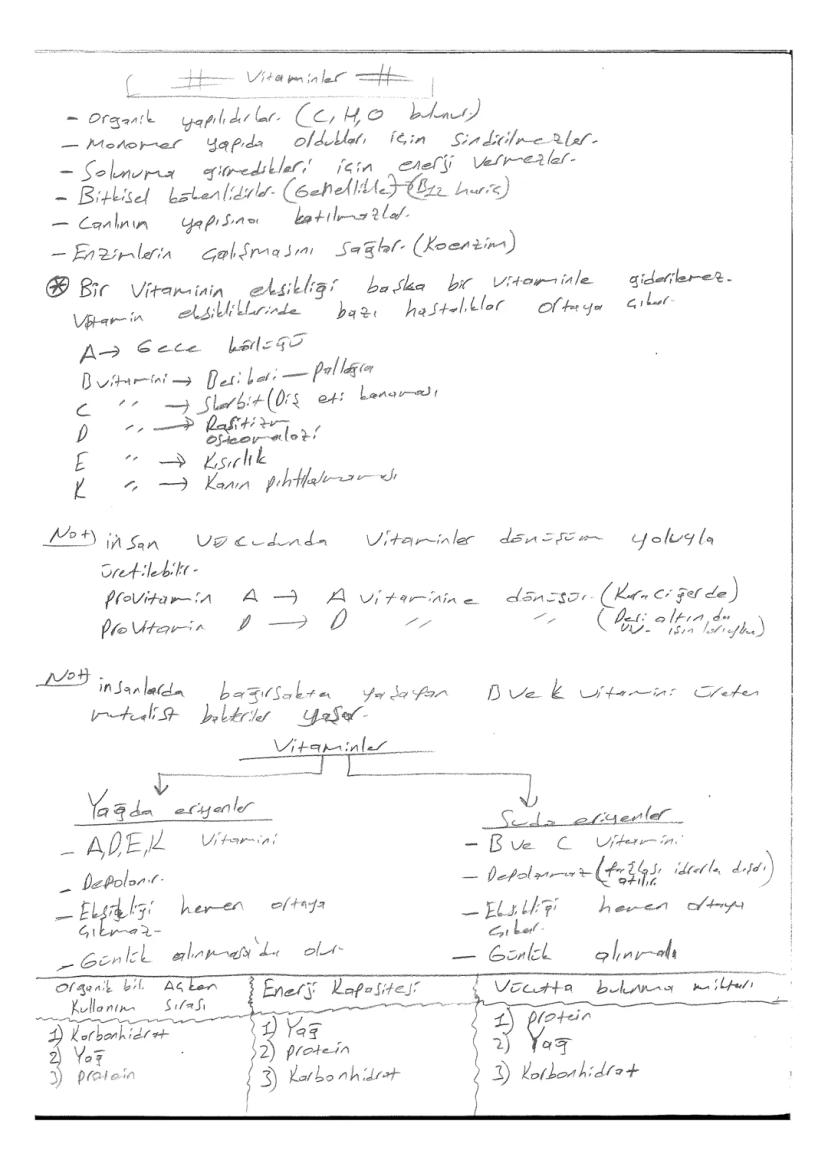 # Vitaminler #
- Organik yapılıdırlar. (C, H, O bulunur)
- Monomer yapıda oldukları için sindirilmezler.
- Solunuma girmedikleri için enerji vermezler.
- Bitkisel kökenlidirler. (Genellikle) (B12 hariç)
- Canlının yapısına katılmazlar.
- Enzimlerin çalışmasını sağlar. (Koenzim)
* Bir vitaminin eksikliği başka bir vitaminle giderilemez.
Vitamin eksikliklerinde bazı hastalıklar ortaya çıkar.
A → Gece körlüğü
B vitamini → Beriberi - Pellegra
C " → Skorbit (Diş eti kanaması
D " → Raşitizm
osteomalozi
E " → Kısırlık
K " → Kanın pıhtılaşmaması
Not) insan vücudunda vitaminler dönüşüm yoluyla
üretilebilir.
Provitamin A → A vitaminine dönüşür. (Karaciğerde)
Provitamin D → D " " (Deri altında
UV ışın
Not) insanlarda bağırsakta yaşayan B ve K vitamini üreten
mutualist bakteriler yaşar.
Vitaminler
Yağda eriyenler Suda eriyenler
- A,D,E,K vitamini - B ve C vitamini
- Depolanır. - Depolanmaz (fazlası idrarla dışdı
atılır.)
- Eksikliği hemen ortaya - Eksikliği hemen ortaya
çıkmaz. çıkar.
- Günlük alınmasa'da olur. - Günlük alınmalı
Organik bil. Açken Enerji Kapasitesi Vücutta bulunma miktarı
Kullanım Sırası
1) Karbonhidrat 1) Yağ 1) protein
2) Yağ 2) protein 2) Yağ
3) protein 3) Karbonhidrat 3) Karbonhidrat